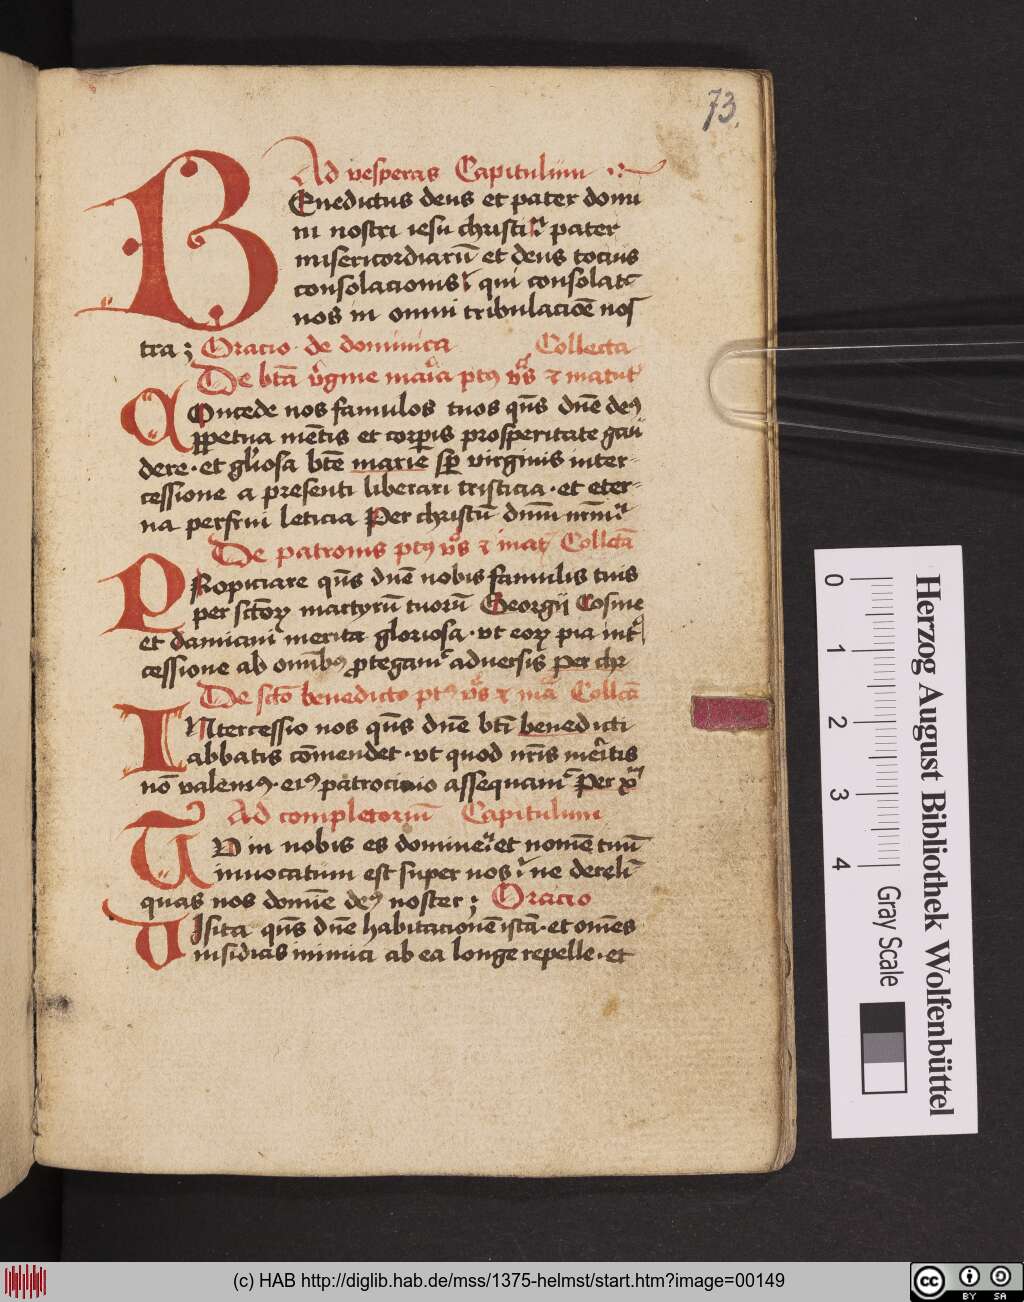 73.
Ad vesperas Capitulum
BEnedictus deus et pater domi
ni nostri iesu christi pater
misericordiarū et deus tocius
consolacionis qui consolat᷑
nos in omni tribulacōe nos
tra; Oracio de dominica Collecta
De btā v̊gine maria ptꝫ vꝰs ⁊ matut᷑
COncede nos famulos tuos qs̄ dn̄e deꝰ
ꝑpetua mētis et corꝑis prosperitate gau
dere · et gl̓iosa btē marie sꝑ virginis inter-
cessione a presenti liberari tristicia · et eter-
na perfrui leticia Per christū dn̄m nr̄m
De patronis ptꝫ vꝰs ⁊ mat᷑ Collcā
PRopiciare qs̄ dn̄e nobis famulis tuis
per sctōꝝ martyrū tuorū Georgij Cosme
et damiani merita gloriosa · vt eoꝝ pia int᷑
cessione ab omībꝰ ꝓtegam᷑ aduersis Per chr
De sctō benedicto ptꝫ vꝰs ⁊ mā Collcā
INtercessio nos qs̄ dn̄e btī benedicti
abbatis cōmendet · vt quod nr̄is meritis
nō valemꝰ · eiꝰ patrocinio assequam᷑ Per xp̄
Ad completoriū Capitulum
TU in nobis es domine et nomē tuū
inuocatum est super nos ne dereli
quas nos domīe deꝰ noster; Oracio
VIsita qs̄ dn̄e habitacionē istā · et omēs
insidias inimici ab ea longe repelle · et
0 1 2 3 4
Herzog August Bibliothek Wolfenbüttel
Gray Scale
(c) HAB http://diglib.hab.de/mss/1375-helmst/start.htm?image=00149
cc BY SA